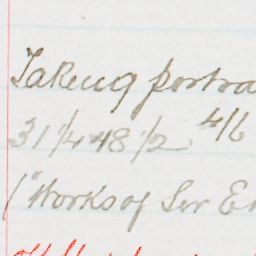 Taking portra
31 1/4 48 1/2. 4/6
("Works of Sir E